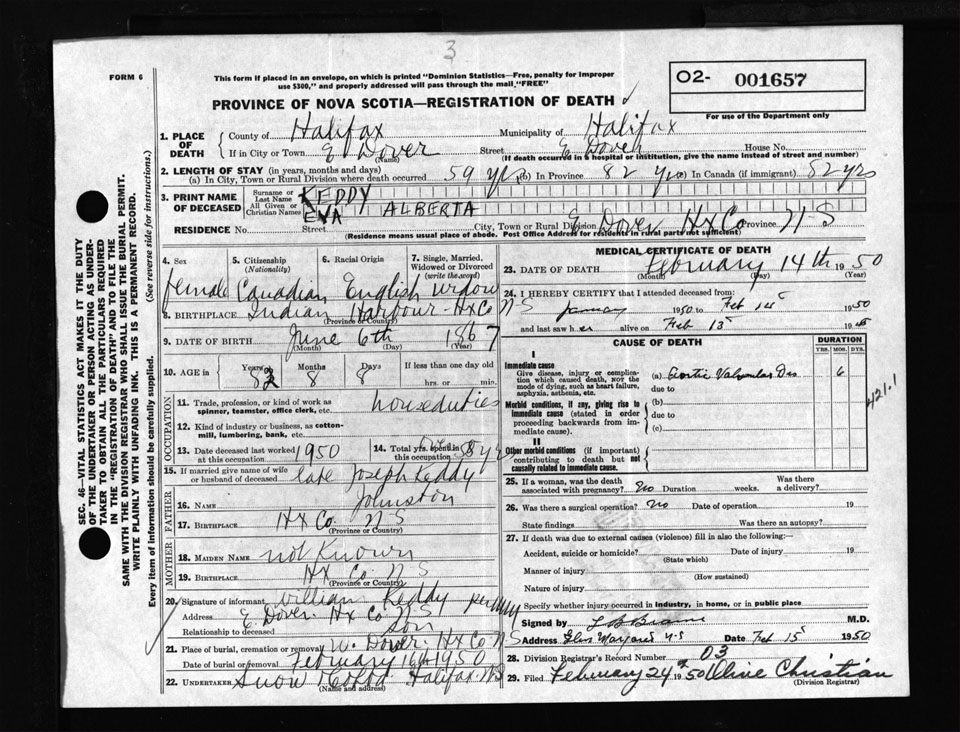 3
FORM 6
This form if placed in an envelope, on which is printed "Dominion Statistics—Free, penalty for improper
use $300," and properly addressed will pass through the mail, "FREE"
O2- 001657
For use of the Department only
PROVINCE OF NOVA SCOTIA—REGISTRATION OF DEATH
SEC. 46—VITAL STATISTICS ACT MAKES IT THE DUTY
OF THE UNDERTAKER OR PERSON ACTING AS UNDER-
TAKER TO OBTAIN ALL THE PARTICULARS REQUIRED
IN THE "REGISTRATION OF DEATH" AND TO FILE THE
SAME WITH THE DIVISION REGISTRAR WHO SHALL ISSUE THE BURIAL PERMIT.
WRITE PLAINLY WITH UNFADING INK. THIS IS A PERMANENT RECORD.
Every item of information should be carefully supplied. (See reverse side for instructions.)
1. PLACE OF DEATH
County of Halifax Municipality of Halifax
If in City or Town E Dover Street E Dover House No.
(Name) (If death occurred in a hospital or institution, give the name instead of street and number)
2. LENGTH OF STAY (in years, months and days)
(a) In City, Town or Rural Division where death occurred 59 yrs (b) In Province 82 yrs (c) In Canada (if immigrant) 82 yrs
3. PRINT NAME OF DECEASED
Surname or Last Name KEDDY
All Given or Christian Names EVA ALBERTA
RESIDENCE No. Street City, Town or Rural Division E Dover Hx Co Province N-S
(Residence means usual place of abode. Post Office Address for residents in rural parts not sufficient)
4. Sex female
5. Citizenship (Nationality) Canadian
6. Racial Origin English
7. Single, Married, Widowed or Divorced (write the word) widow
8. BIRTHPLACE Indian Harbour - Hx Co N-S
(Province or Country)
9. DATE OF BIRTH June 6th 1867
(Month) (Day) (Year)
10. AGE in Years Months Days If less than one day old
82 8 8 hrs. or min.
OCCUPATION
11. Trade, profession, or kind of work as
spinner, teamster, office clerk, etc. houseduties
12. Kind of industry or business, as cotton-
mill, lumbering, bank, etc.
13. Date deceased last worked at this occupation 1950
14. Total yrs. spent in this occupation
15. If married give name of wife
or husband of deceased late Joseph Keddy
FATHER
16. Name Johnston
17. BIRTHPLACE Hx Co N-S
(Province or Country)
MOTHER
18. MAIDEN NAME not Known
19. BIRTHPLACE Hx Co N S
(Province or Country)
20. Signature of informant William Keddy per
Address E. Dover Hx Co N S
Relationship to deceased son
21. Place of burial, cremation or removal W Dover Hx Co N S
Date of burial or removal February 16th 1950
22. UNDERTAKER Snow Halifax NS
(Name and address)
MEDICAL CERTIFICATE OF DEATH
23. DATE OF DEATH February 14th 1950
(Month) (Day) (Year)
24. I HEREBY CERTIFY that I attended deceased from:
January 1950 to Feb 14 1950
and last saw her alive on Feb 13 19
CAUSE OF DEATH
DURATION
YRS. MOS. DYS.
I
Immediate cause
Give disease, injury or complica-
tion which caused death, NOT the
mode of dying, such as heart failure,
asphyxia, asthenia, etc.
(a) Aortic Valvular Dis 6
due to
Morbid conditions, if any, giving rise to
immediate cause (stated in order
proceeding backwards from im-
mediate cause).
(b)
due to
(c)
421.1
II
Other morbid conditions (if important)
contributing to death but not
causally related to immediate cause.
25. If a woman, was the death
associated with pregnancy? no Duration weeks. Was there a delivery?
26. Was there a surgical operation? no Date of operation 19
State findings Was there an autopsy?
27. If death was due to external causes (violence) fill in also the following:—
Accident, suicide or homicide? Date of injury 19
(State which)
Manner of injury
(How sustained)
Nature of injury
Specify whether injury occurred in industry, in home, or in public place
Signed by M.D.
Address Glen Margaret N.S Date Feb 15 1950
28. Division Registrar's Record Number 03
29. Filed February 24th 1950 Olive Christian
(Division Registrar)